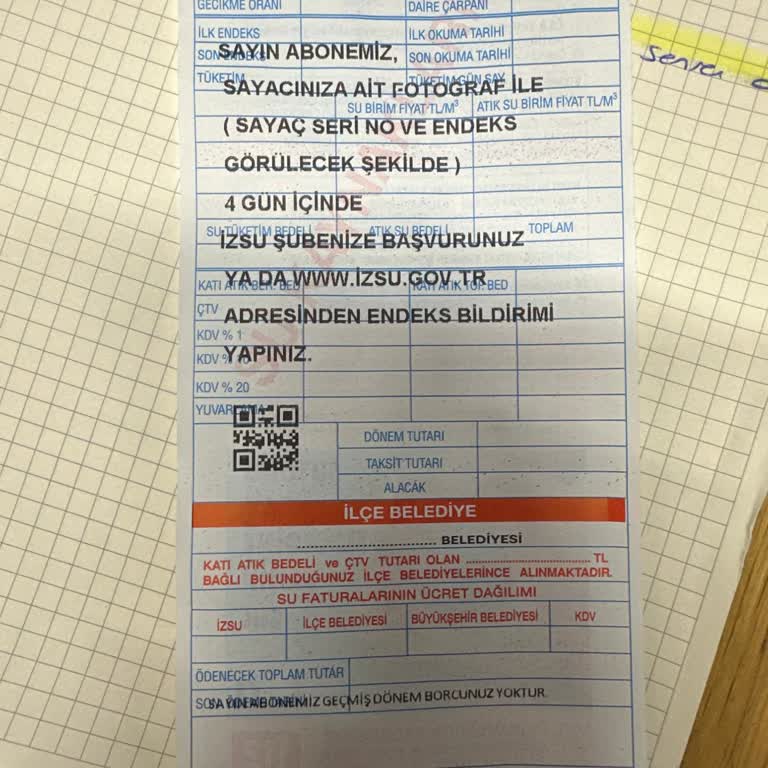 GECİKME ORANI DAİRE ÇARPANI
İLK ENDEKS İLK OKUMA TARİHİ
SON ENDEKS SON OKUMA TARİHİ
SAYIN ABONEMİZ,
TÜKETİM TÜKETİM GÜN SAY
SAYACINIZA AİT FOTOĞRAF İLE
SU BİRİM FİYAT TL/M³ ATIK SU BİRİM FİYAT TL/M³
( SAYAÇ SERİ NO VE ENDEKS
GÖRÜLECEK ŞEKİLDE )
4 GÜN İÇİNDE
SU TÜKETİM BEDELİ ATIK SU BEDELİ TOPLAM
İZSU ŞUBENİZE BAŞVURUNUZ
YA DA WWW.İZSU.GOV.TR
KATI ATIK BER. BED KATI ATIK TOP. BED
ÇTV
ADRESİNDEN ENDEKS BİLDİRİMİ
KDV % 1
YAPINIZ.
KDV %
KDV % 20
YUVARLAMA
DÖNEM TUTARI
TAKSİT TUTARI
ALACAK
İLÇE BELEDİYE
................................ BELEDİYESİ
KATI ATIK BEDELİ ve ÇTV TUTARI OLAN ................................ TL
BAĞLI BULUNDUĞUNUZ İLÇE BELEDİYELERİNCE ALINMAKTADIR.
SU FATURALARININ ÜCRET DAĞILIMI
İZSU İLÇE BELEDİYESİ BÜYÜKŞEHİR BELEDİYESİ KDV
ÖDENECEK TOPLAM TUTAR
SAYIN ABONEMİZ GEÇMİŞ DÖNEM BORCUNUZ YOKTUR.